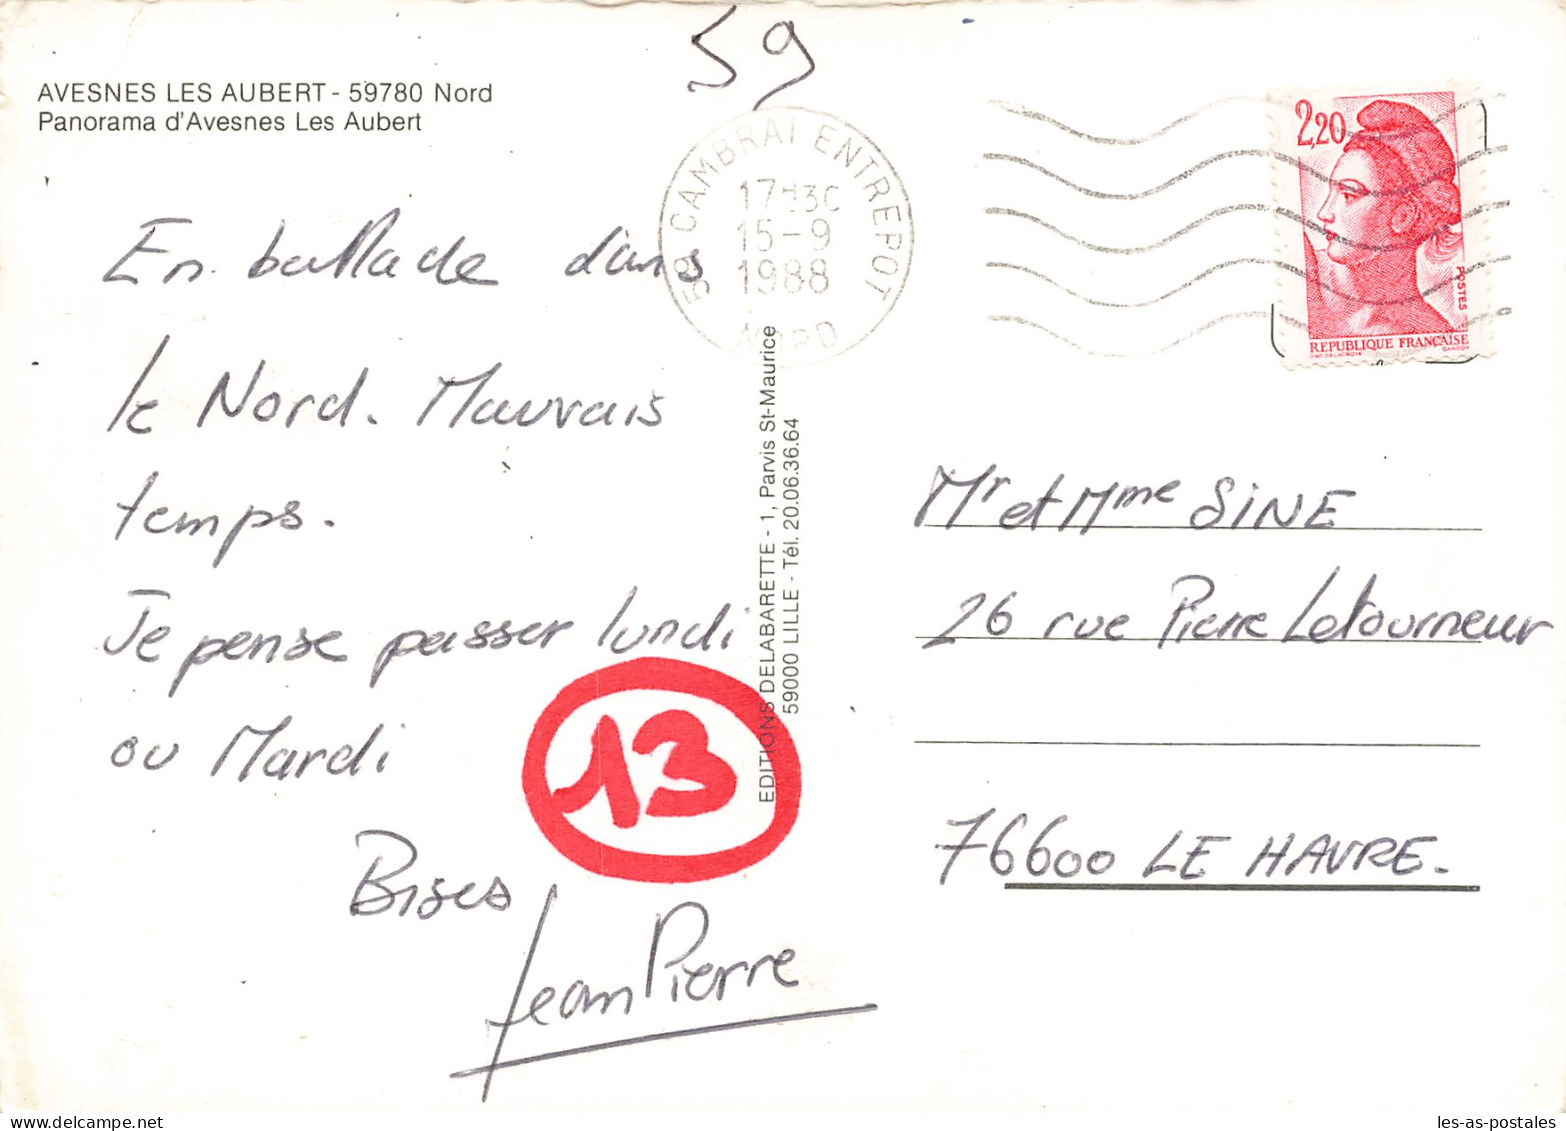 59
AVESNES LES AUBERT - 59780 Nord
Panorama d'Avesnes Les Aubert
59 CAMBRAI ENTREPOT
17H30
15-9
1988
NORD
2,20
POSTES
REPUBLIQUE FRANÇAISE
En ballade dans
le Nord. Mauvais
temps.
Je pense passer lundi
ou Mardi
13
Bises
Jean Pierre
EDITIONS DELABARETTE - 1, Parvis St-Maurice
59000 LILLE - Tél. 20.06.36.64
Mr et Mme SINE
26 rue Pierre Letourneur
76600 LE HAVRE.
delcampe.net
les-as-postales